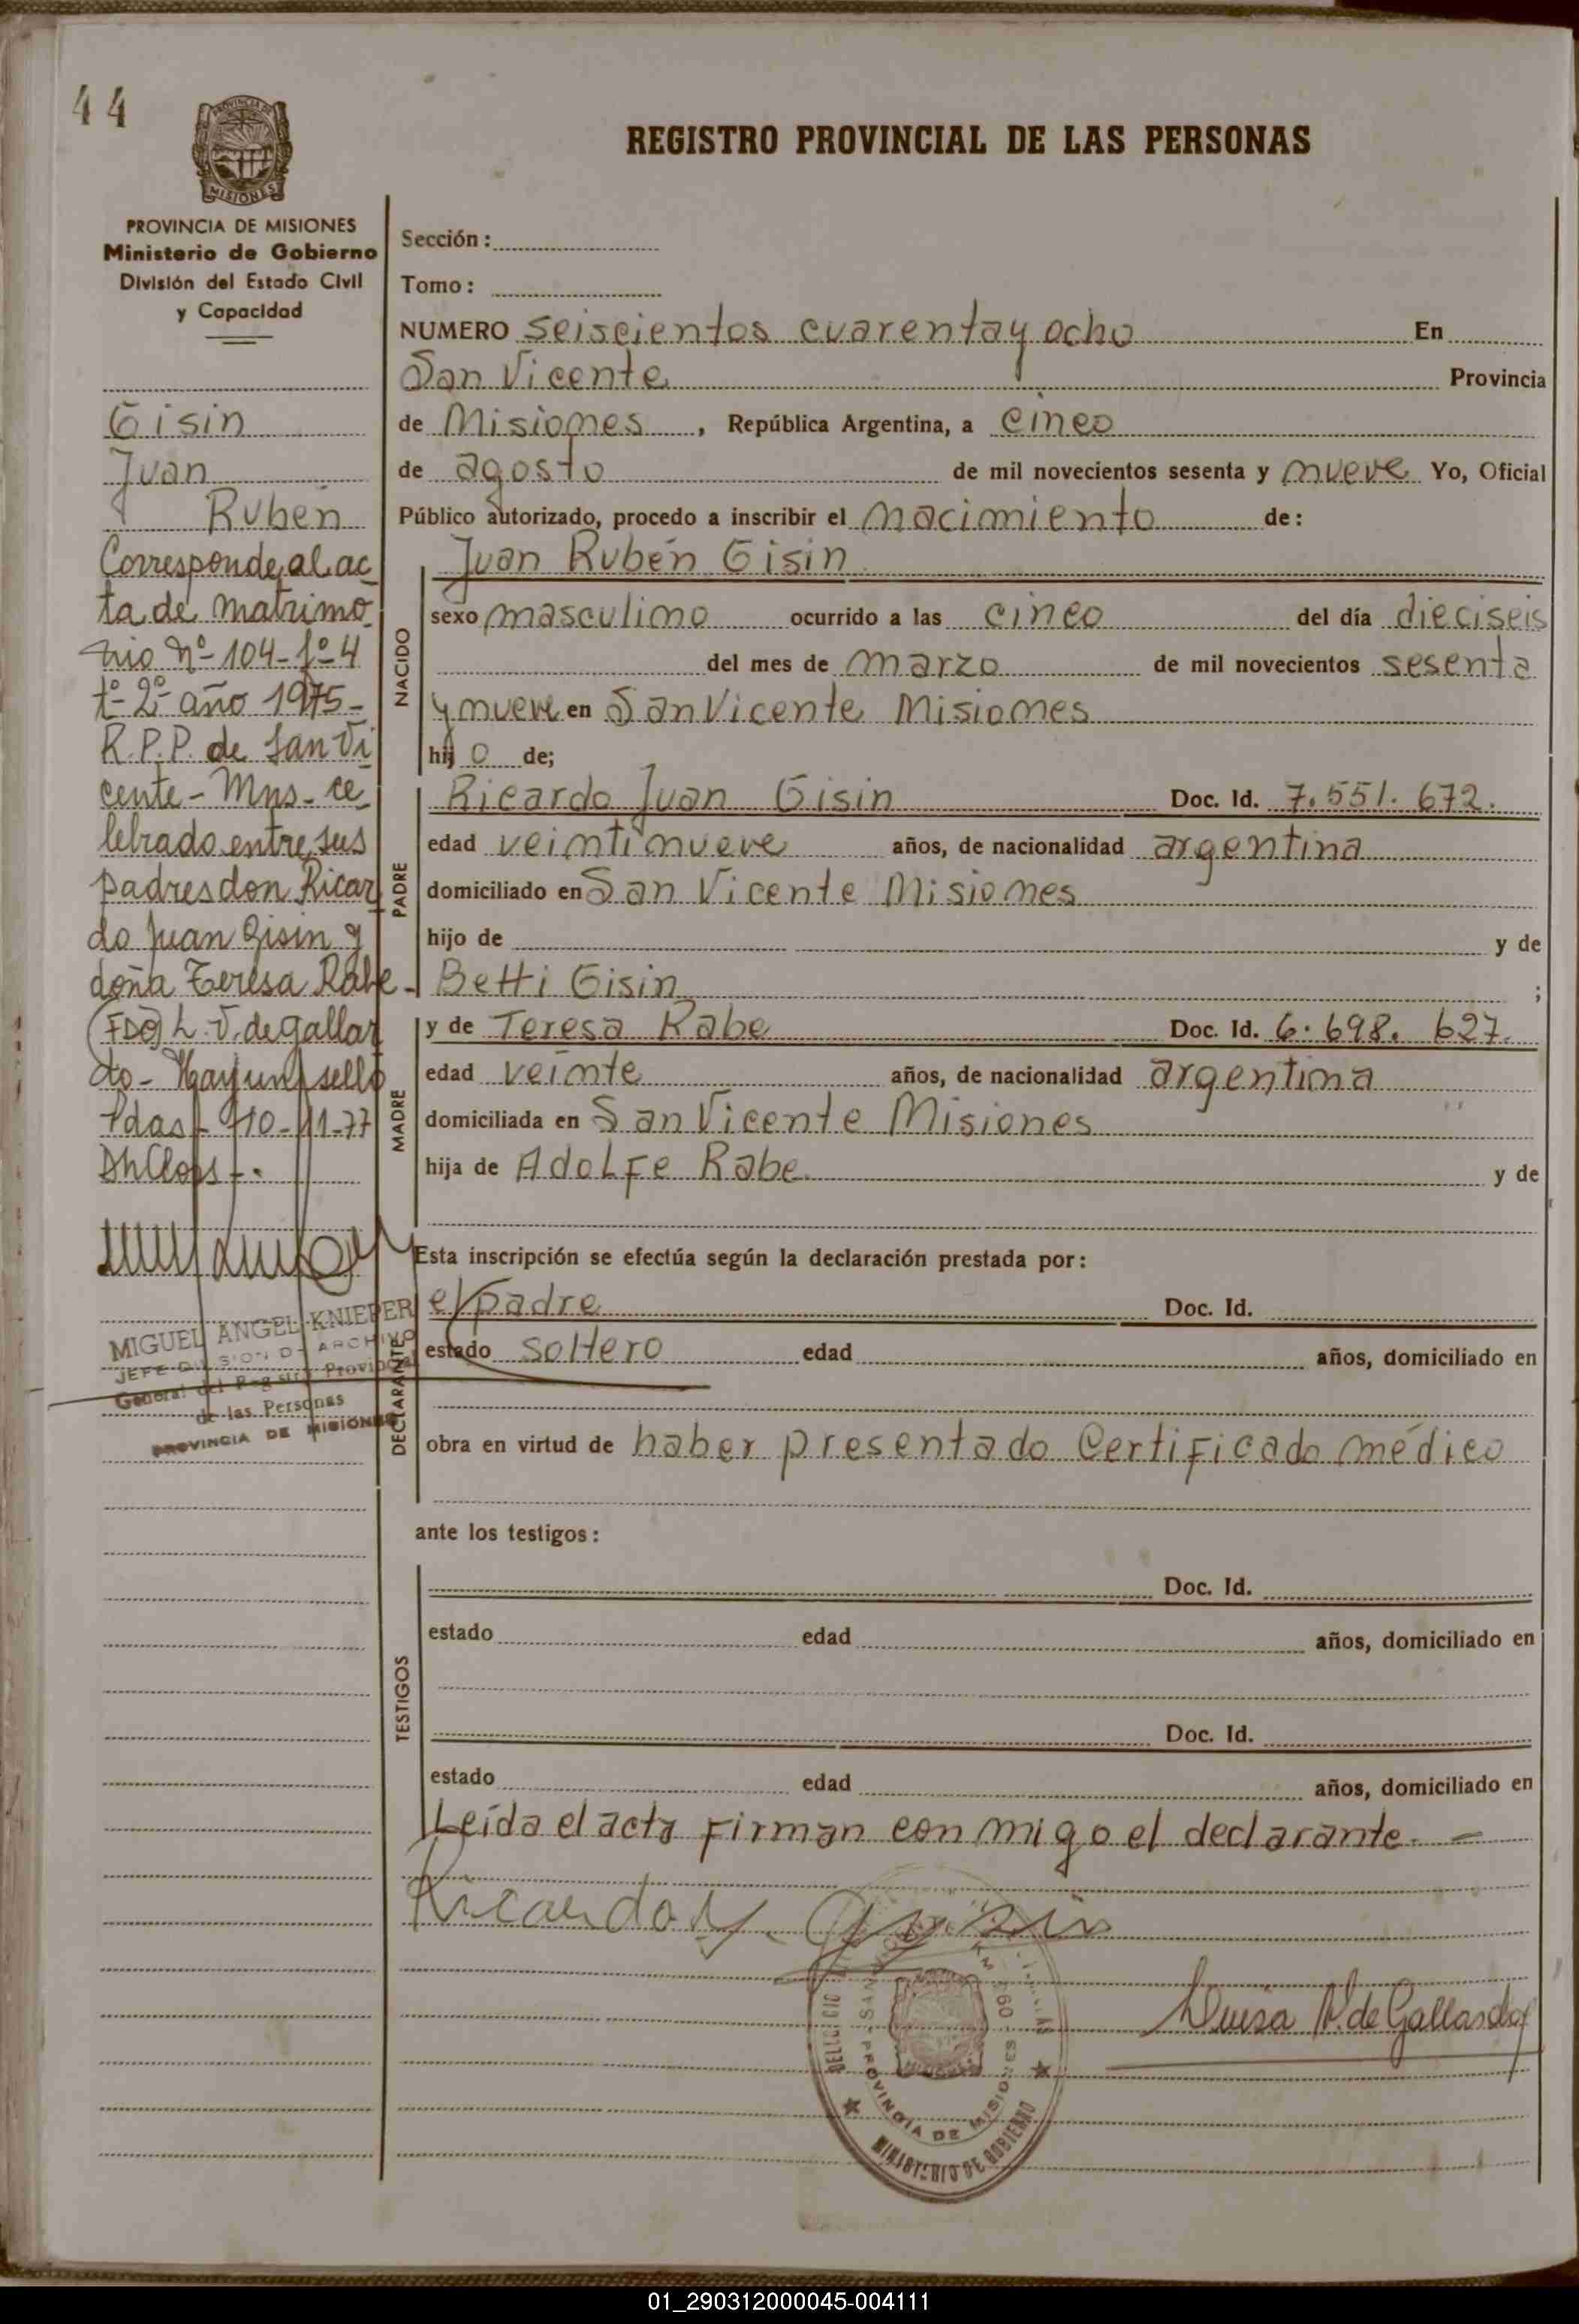 44
PROVINCIA DE
MISIONES
REGISTRO PROVINCIAL DE LAS PERSONAS
PROVINCIA DE MISIONES
Ministerio de Gobierno
División del Estado Civil
y Capacidad
Gisin
Juan
Rubén
Corresponde al ac
ta de matrimo
nio Nº 104-fº 4
tº 2º año 1975-
R.P.P. de San Vi
cente - Mns- ce
lebrado entre sus
padres don Ricar
do Juan Gisin y
doña Teresa Rabe-
(FDO) L. V. de Gallar
do - Hay un sello
Pdas - 10-11-77
MIGUEL ANGEL KNIEPER
JEFE DIVISION DE ARCHIVO
General del Registro Provincial
de las Personas
PROVINCIA DE MISIONES
Sección:
Tomo:
NUMERO seiscientos cuarenta y ocho En
San Vicente Provincia
de Misiones, República Argentina, a cinco
de agosto de mil novecientos sesenta y nueve Yo, Oficial
Público autorizado, procedo a inscribir el nacimiento de:
Juan Rubén Gisin
NACIDO
sexo masculino ocurrido a las cinco del día dieciseis
del mes de marzo de mil novecientos sesenta
y nueve en San Vicente Misiones
hijo de;
PADRE
Ricardo Juan Gisin Doc. Id. 7.551.672.
edad veintinueve años, de nacionalidad argentina
domiciliado en San Vicente Misiones
hijo de y de
Betti Gisin ;
MADRE
y de Teresa Rabe Doc. Id. 6.698.627.
edad veinte años, de nacionalidad argentina
domiciliada en San Vicente Misiones
hija de Adolfe Rabe y de
Esta inscripción se efectúa según la declaración prestada por:
DECLARANTE
el padre Doc. Id.
estado soltero edad años, domiciliado en
obra en virtud de haber presentado Certificado médico
ante los testigos:
TESTIGOS
Doc. Id.
estado edad años, domiciliado en
Doc. Id.
estado edad años, domiciliado en
Leída el acta firman conmigo el declarante. -
Ricardo J. Gisin
Luisa V. de Gallardo
PROVINCIA DE MISIONES
MINISTERIO DE GOBIERNO
01_290312000045-004111